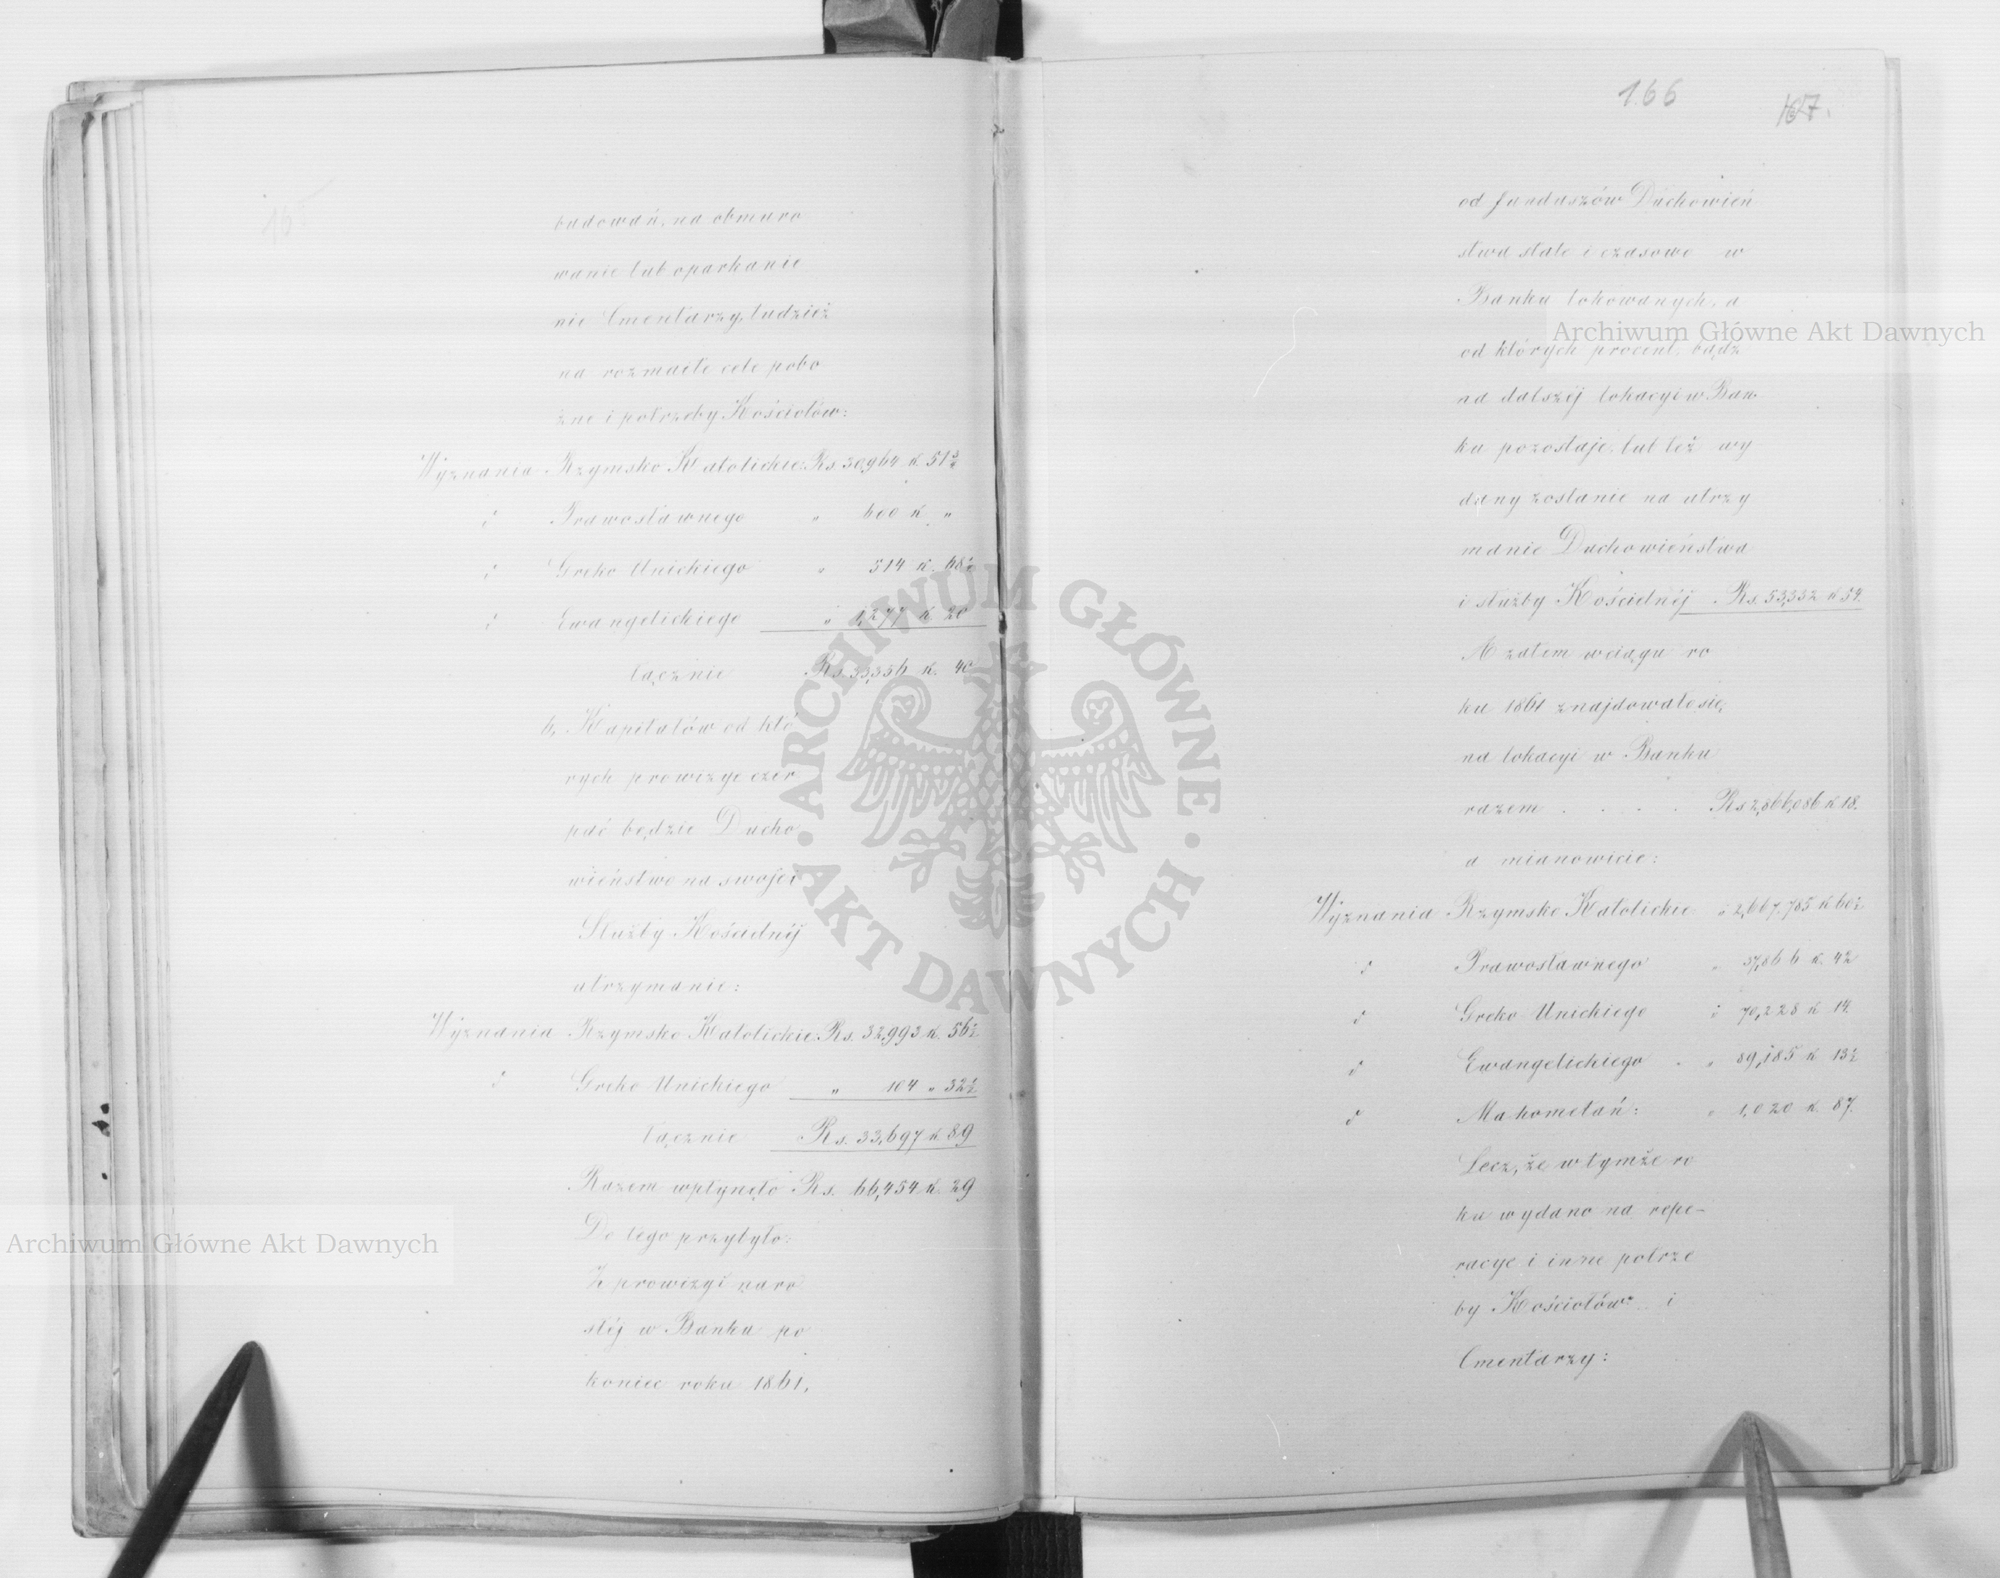 165
budowań, na obmuro
wanie lub oparkanie
nie Cmentarzy, tudzież
na rozmaite cele pobo
żne i potrzeby Kościołów:
Wyznania Rzymsko Katolickie: Rs. 30,964 k. 51½
d° Prawosławnego " 600 k. "
d° Greko Unickiego " 514 k. 68½
d° Ewangelickiego " 1,277 k. 20
łącznie Rs. 33,356 k. 40
b, Kapitałów od któ
rych prowizye czer
pać będzie Ducho
wieństwo na swojei
Służby Kościelnéj
utrzymanie:
Wyznania Rzymsko Katolickie: Rs. 32,993 k. 56½
d° Greko Unickiego " 104 " 32½
łącznie Rs. 33,697 k. 89
Razem wpłynęło Rs. 66,454 k. 29
Do tego przybyło:
Z prowizyi naro
słéj w Banku po
koniec roku 1861,
166
167.
od funduszów Duchowień
stwa stale i czasowo w
Banku lokowanych, a
od których procent, bądź
na dalszéj lokacyi w Ban
ku pozostaje, lub też wy
dany zostanie na utrzy
manie Duchowieństwa
i służby Kościelnéj Rs. 53,332 k 54.
A zatem w ciągu ro
ku 1861 znajdowało się
na lokacyi w Banku
razem . . . . Rs 2,866,086 k 18.
a mianowicie:
Wyznania Rzymsko Katolickie " 2,667,785 k 60½
d° Prawosławnego " 37,866 k. 42
d° Greko Unickiego " 70,228 k 14.
d° Ewangelickiego " 89,185 k 13½
d° Mahometan: " 1,020 k. 87.
Lecz, że w tymże ro
ku wydano na repe-
racye i inne potrze
by Kościołów i
Cmentarzy:
Archiwum Główne Akt Dawnych
Archiwum Główne Akt Dawnych
ARCHIWUM GŁÓWNE · AKT DAWNYCH ·